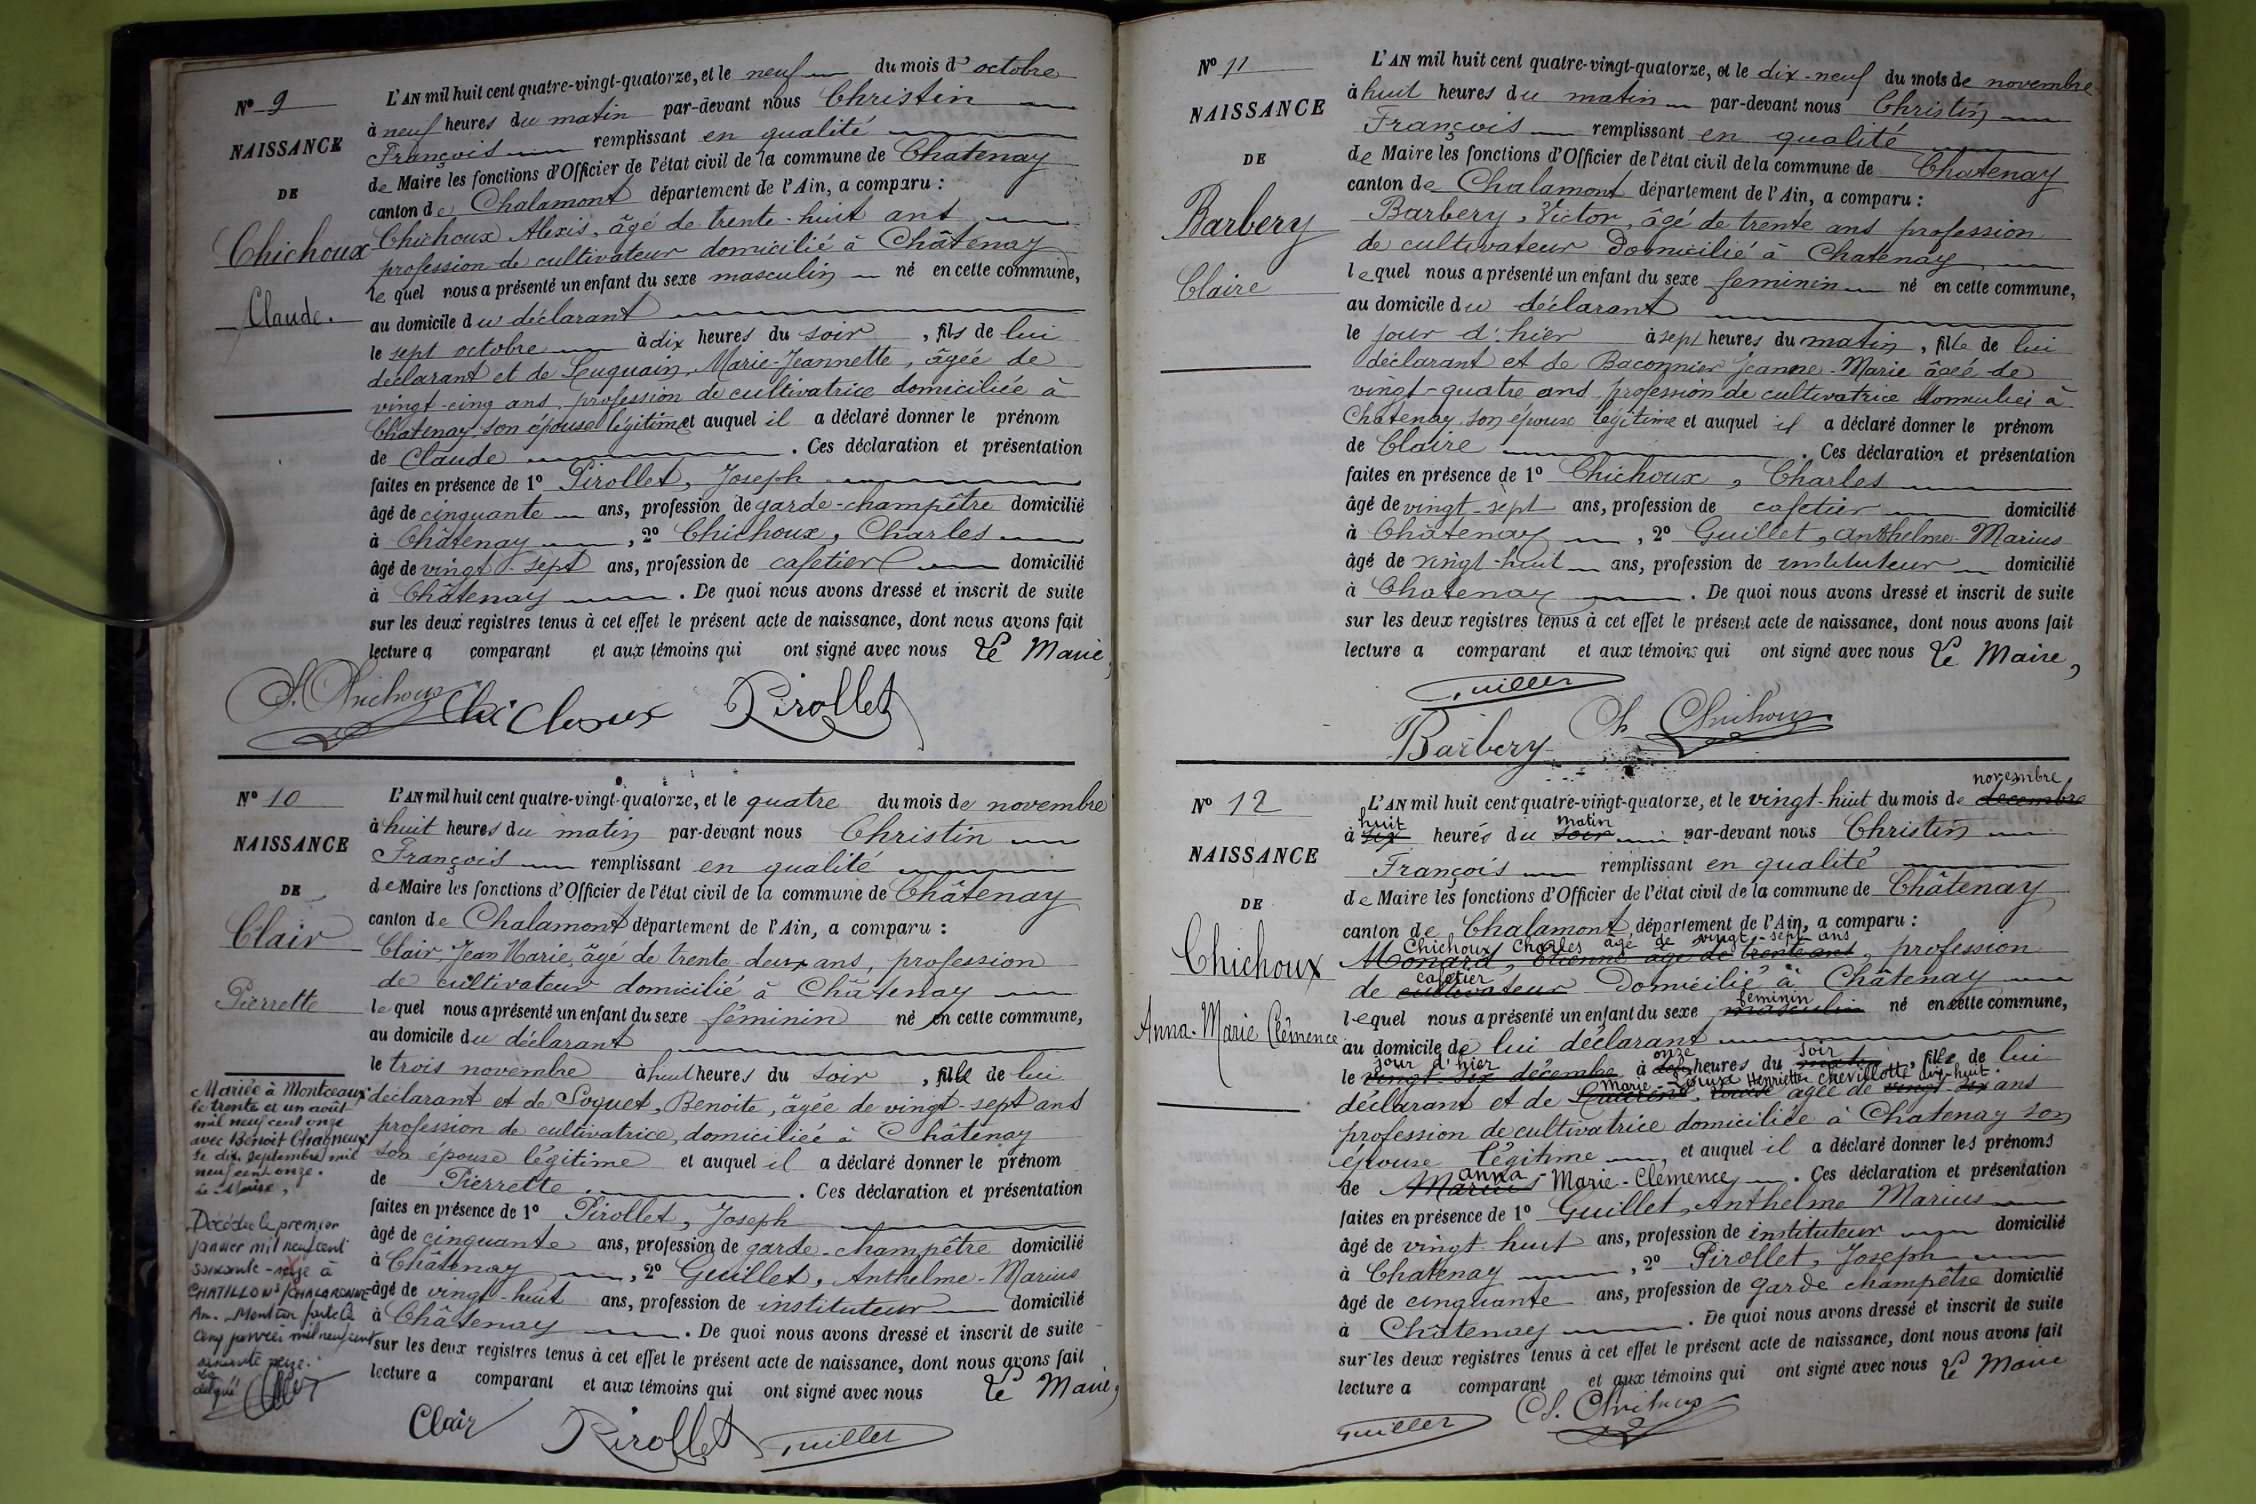 N° 9
NAISSANCE
DE
Chichoux
Claude.
L'AN mil huit cent quatre-vingt-quatorze, et le neuf du mois d' octobre
à neuf heures du matin par-devant nous Christin
François remplissant en qualité
de Maire les fonctions d'Officier de l'état civil de la commune de Chatenay
canton de Chalamont département de l'Ain, a comparu :
Chichoux Alexis, âgé de trente-huit ans
profession de cultivateur domicilié à Châtenay
le quel nous a présenté un enfant du sexe masculin né en cette commune,
au domicile du déclarant
le sept octobre à dix heures du soir, fils de lui
déclarant et de Luquain, Marie-Jeannette, âgée de
vingt-cinq ans, profession de cultivatrice domiciliée à
Chatenay, son épouse légitime et auquel il a déclaré donner le prénom
de Claude. Ces déclaration et présentation
faites en présence de 1° Pirollet, Joseph
âgé de cinquante ans, profession de garde-champêtre domicilié
à Châtenay, 2° Chichoux, Charles
âgé de vingt-sept ans, profession de cafetier domicilié
à Châtenay. De quoi nous avons dressé et inscrit de suite
sur les deux registres tenus à cet effet le présent acte de naissance, dont nous avons fait
lecture a comparant et aux témoins qui ont signé avec nous Le Maire,
A. Chichoux Chichoux Pirollet
N° 10
NAISSANCE
DE
Clair
Pierrette
Mariée à Montceaux
le trente et un août
mil neuf cent onze
avec Benoit Chagneux
Le dix septembre mil
neuf cent onze.
Le Maire,
Décédée le premier
janvier mil neuf cent
soixante-seize à
CHATILLON S/CHALARONNE
Ain. Mention faite le
cinq janvier mil neuf cent
soixante seize.
Le
délégué
L'AN mil huit cent quatre-vingt-quatorze, et le quatre du mois de novembre
à huit heures du matin par-devant nous Christin
François remplissant en qualité
de Maire les fonctions d'Officier de l'état civil de la commune de Châtenay
canton de Chalamont département de l'Ain, a comparu :
Clair, Jean Marie, âgé de trente-deux ans, profession
de cultivateur domicilié à Châtenay
le quel nous a présenté un enfant du sexe féminin né en cette commune,
au domicile du déclarant
le trois novembre à huit heures du soir, fille de lui
déclarant et de Soquet, Benoite, âgée de vingt-sept ans
profession de cultivatrice, domiciliée à Châtenay
son épouse légitime et auquel il a déclaré donner le prénom
de Pierrette. Ces déclaration et présentation
faites en présence de 1° Pirollet, Joseph
âgé de cinquante ans, profession de garde-champêtre domicilié
à Châtenay, 2° Guillet, Anthelme-Marius
âgé de vingt-huit ans, profession de instituteur domicilié
à Châtenay. De quoi nous avons dressé et inscrit de suite
sur les deux registres tenus à cet effet le présent acte de naissance, dont nous avons fait
lecture a comparant et aux témoins qui ont signé avec nous Le Maire,
Clair Pirollet Guillet
N° 11
NAISSANCE
DE
Barbery
Claire
L'AN mil huit cent quatre-vingt-quatorze, et le dix-neuf du mois de novembre
à huit heures du matin par-devant nous Christin
François remplissant en qualité
de Maire les fonctions d'Officier de l'état civil de la commune de Chatenay
canton de Chalamont département de l'Ain, a comparu :
Barbery, Victor, âgé de trente ans profession
de cultivateur Domicilié à Chatenay
lequel nous a présenté un enfant du sexe feminin né en cette commune,
au domicile du déclarant
le jour d'hier à sept heures du matin, fille de lui
déclarant et de Baconnier Jeanne-Marie âgée de
vingt-quatre ans profession de cultivatrice domiciliée à
Châtenay son épouse légitime et auquel il a déclaré donner le prénom
de Claire. Ces déclaration et présentation
faites en présence de 1° Chichoux, Charles
âgé de vingt-sept ans, profession de cafetier domicilié
à Châtenay, 2° Guillet, Anthelme-Marius
âgé de vingt-huit ans, profession de instituteur domicilié
à Chatenay. De quoi nous avons dressé et inscrit de suite
sur les deux registres tenus à cet effet le présent acte de naissance, dont nous avons fait
lecture a comparant et aux témoins qui ont signé avec nous Le Maire,
Guillet
Barbery Ch. Chichoux
N° 12
NAISSANCE
DE
Chichoux
Anna-Marie Clémence
novembre
L'AN mil huit cent quatre-vingt-quatorze, et le vingt-huit du mois de decembre
huit matin
à six heures du soir par-devant nous Christin
François remplissant en qualité
de Maire les fonctions d'Officier de l'état civil de la commune de Châtenay
canton de Chalamont département de l'Ain, a comparu :
Chichoux Charles âgé de vingt-sept ans
Monard, Etienne âgé de trente ans, profession
cafetier
de cultivateur Domicilié à Châtenay
feminin
lequel nous a présenté un enfant du sexe masculin né en cette commune,
au domicile de lui déclarant
jour d'hier onze soir
le vingt-six décembre à heures du matin, fille de lui
Marie-Louise Henriette Chevillotte dix-huit
déclarant et de Louise âgée de vingt six ans
profession de cultivatrice domiciliée à Chatenay son
épouse légitime et auquel il a déclaré donner les prénoms
anna
de Marius-Marie-Clémence. Ces déclaration et présentation
faites en présence de 1° Guillet, Anthelme Marius
âgé de vingt-huit ans, profession de instituteur domicilié
à Chatenay, 2° Pirollet, Joseph
âgé de cinquante ans, profession de garde champêtre domicilié
à Châtenay. De quoi nous avons dressé et inscrit de suite
sur les deux registres tenus à cet effet le présent acte de naissance, dont nous avons fait
lecture a comparant et aux témoins qui ont signé avec nous Le Maire
Guillet Ch. Chichoux